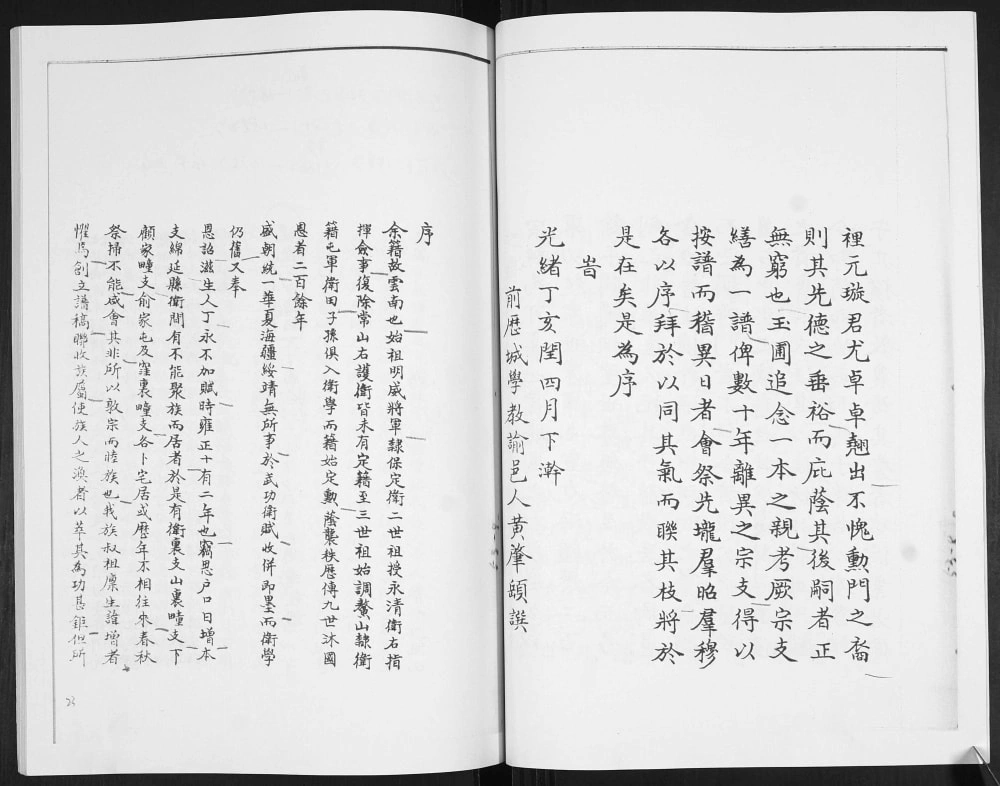 裡元璇君尤卓卓翹出不愧勳門之裔
則其先德之垂裕而庇蔭其後嗣者正
無窮也玉圃追念一本之親考厥宗支
繕為一譜俾數十年離異之宗支得以
按譜而稽異日者會祭先壠羣昭羣穆
各以序拜於以同其氣而聯其枝將於
是在矣是為序
旹
光緒丁亥閏四月下澣
前歷城學教諭邑人黃肇頥撰
序
余籍故雲南也始祖明威將軍隸保定衛二世祖授永清衛右指
揮僉事復除常山右護衛皆未有定籍至三世祖始調鰲山隸衛
籍屯軍衛田子孫俱入衛學而籍始定勳蔭襲秩歷傳九世沐國
恩者二百餘年
盛朝統一華夏海疆綏靖無所事於武功衛賦收併即墨而衛學
仍舊又奉
恩詔滋生人丁永不加賦時雍正十有二年也竊思戶口日增本
支綿延縣衛間有不能聚族而居者於是有衛裏支山裏疃支下
顧家疃支俞家屯及窪裏疃支各卜宅居或歷年不相往來春秋
祭掃不能咸會其非所以敦宗而睦族也我族叔祖廩生諱增者
懼焉創立譜稿聯收族屬使族人之渙者以萃其為功甚鉅但所
23